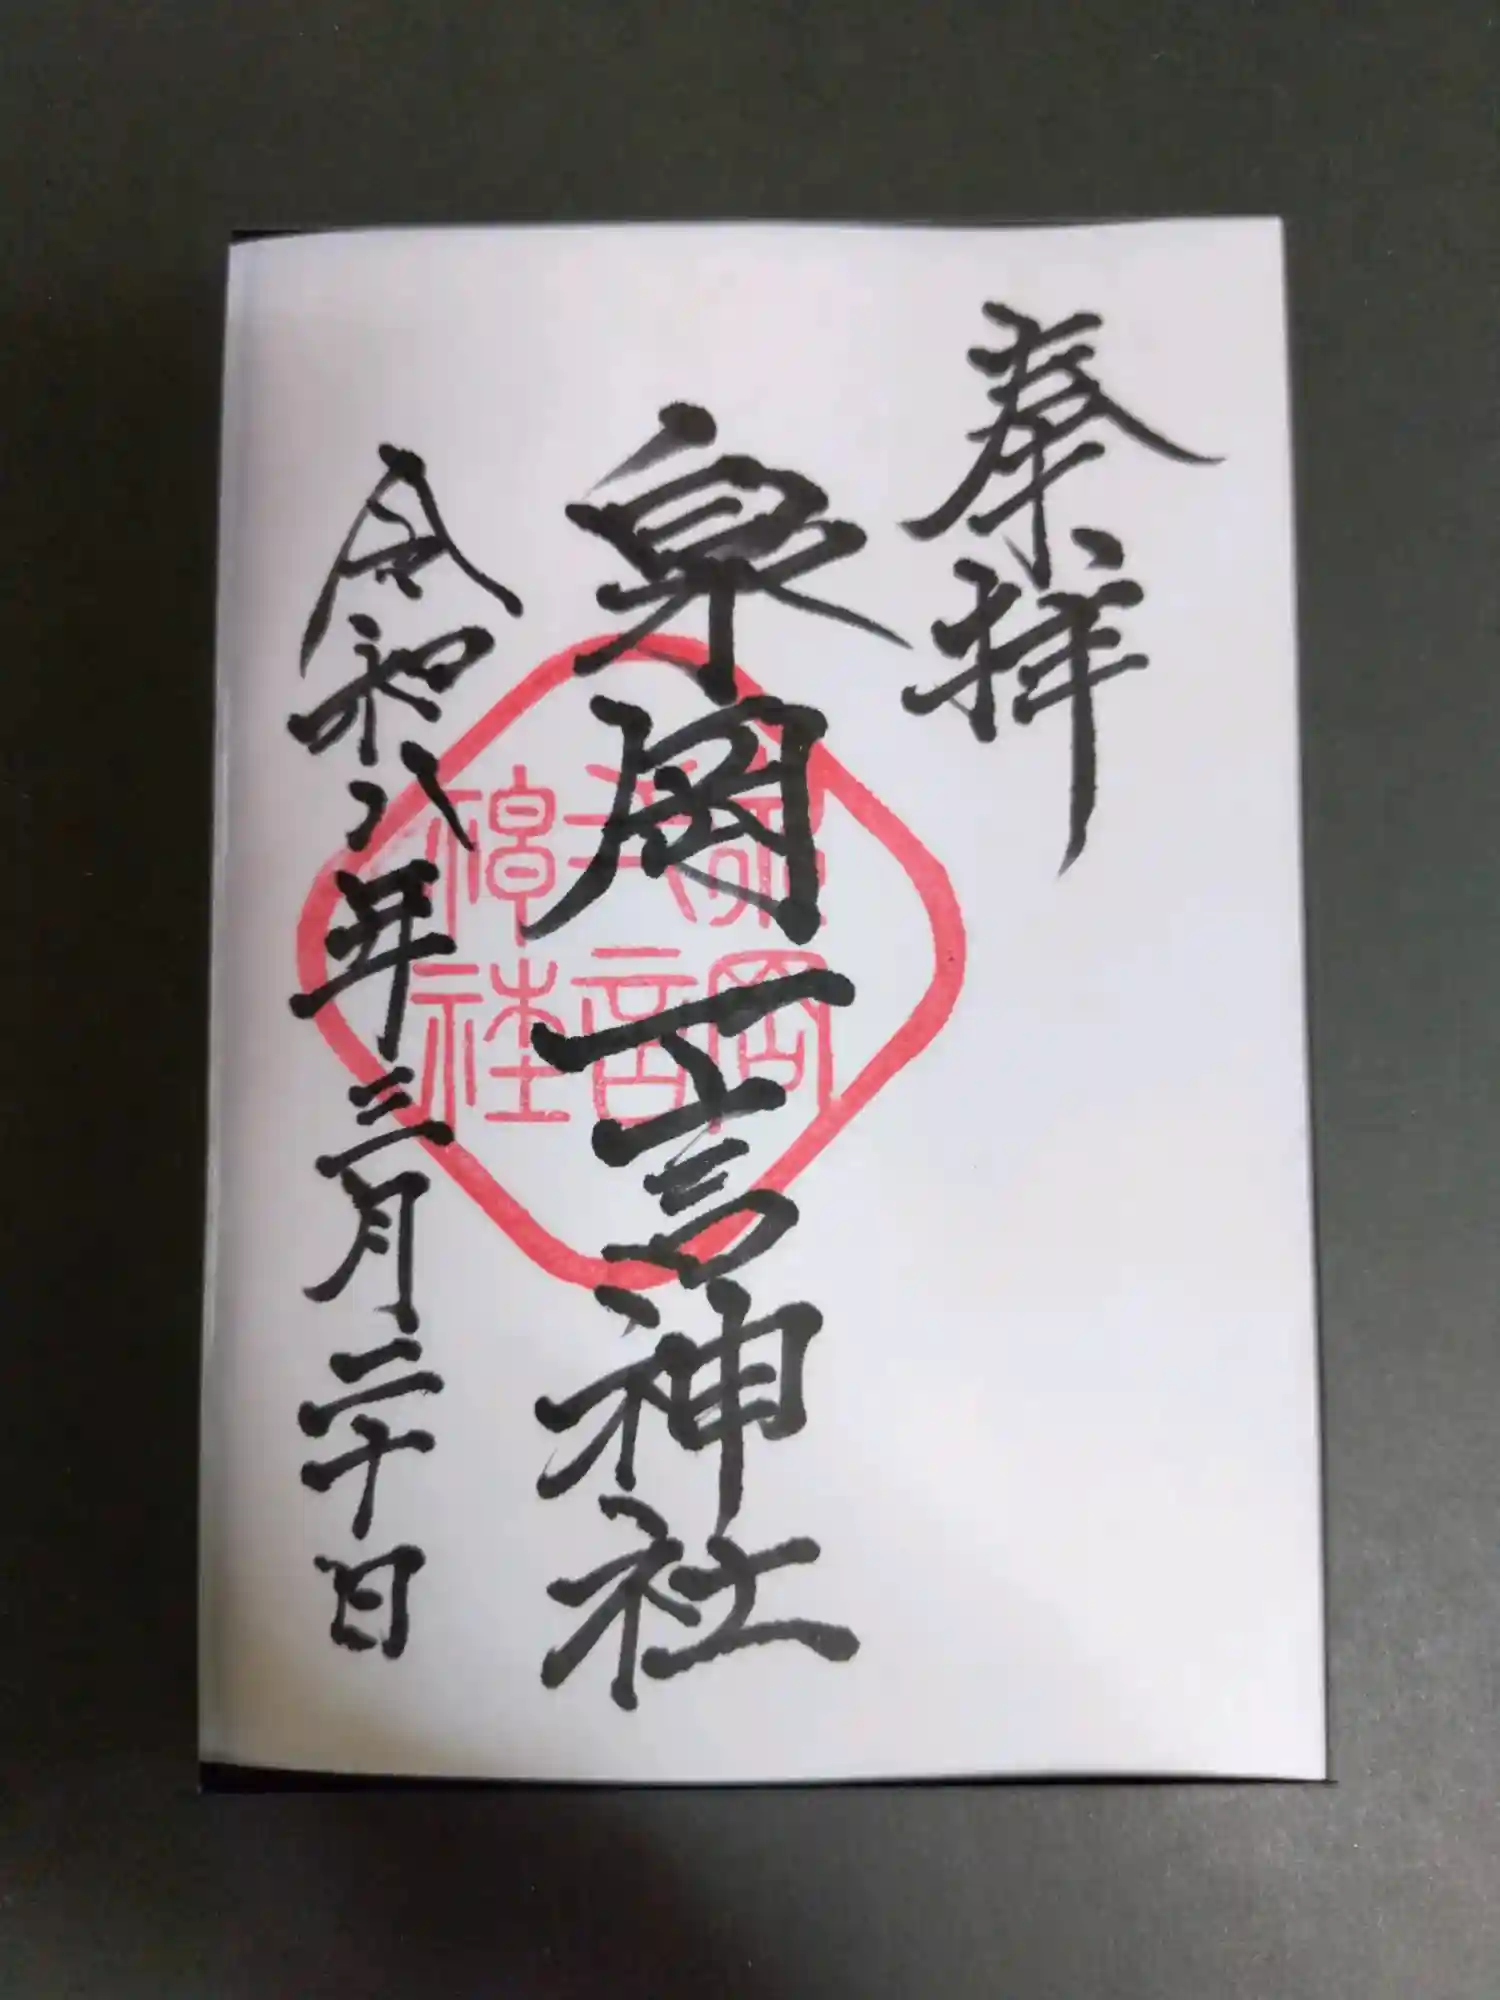 奉拝
泉岡一言神社
泉岡
一言
神社
令和八年三月二十日